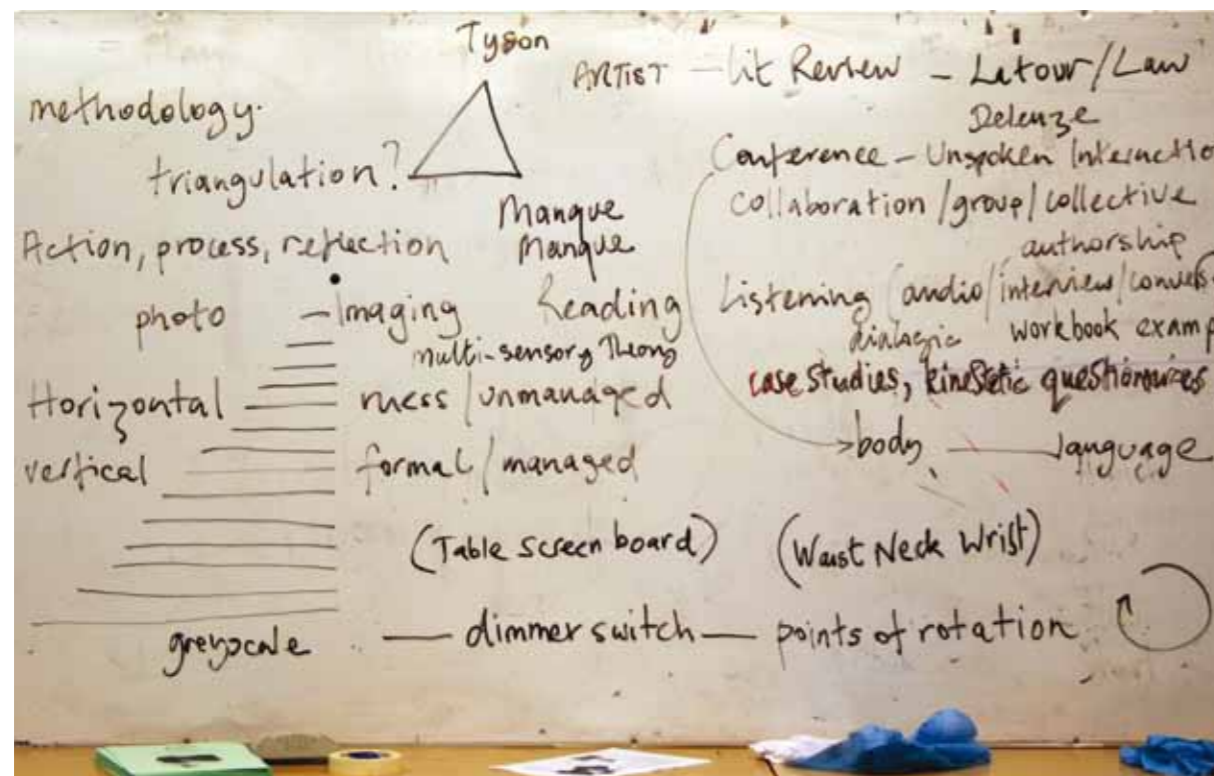 Tyson
methodology.
triangulation?
Action, process, reflection
Manque
Manque
photo — Imaging Reading
multi-sensory Theory
Horizontal — mess/unmanaged
vertical formal/managed
(Table screen board) (Waist Neck Wrist)
greyscale — dimmer switch — points of rotation
ARTIST — Lit Review — Latour/Law
Deleuze
Conference — Unspoken Interactio
collaboration/group/collective
authorship
Listening (audio/interview/convers
dialogic workbook examp
case studies, kinestetic questionnaires
body — language